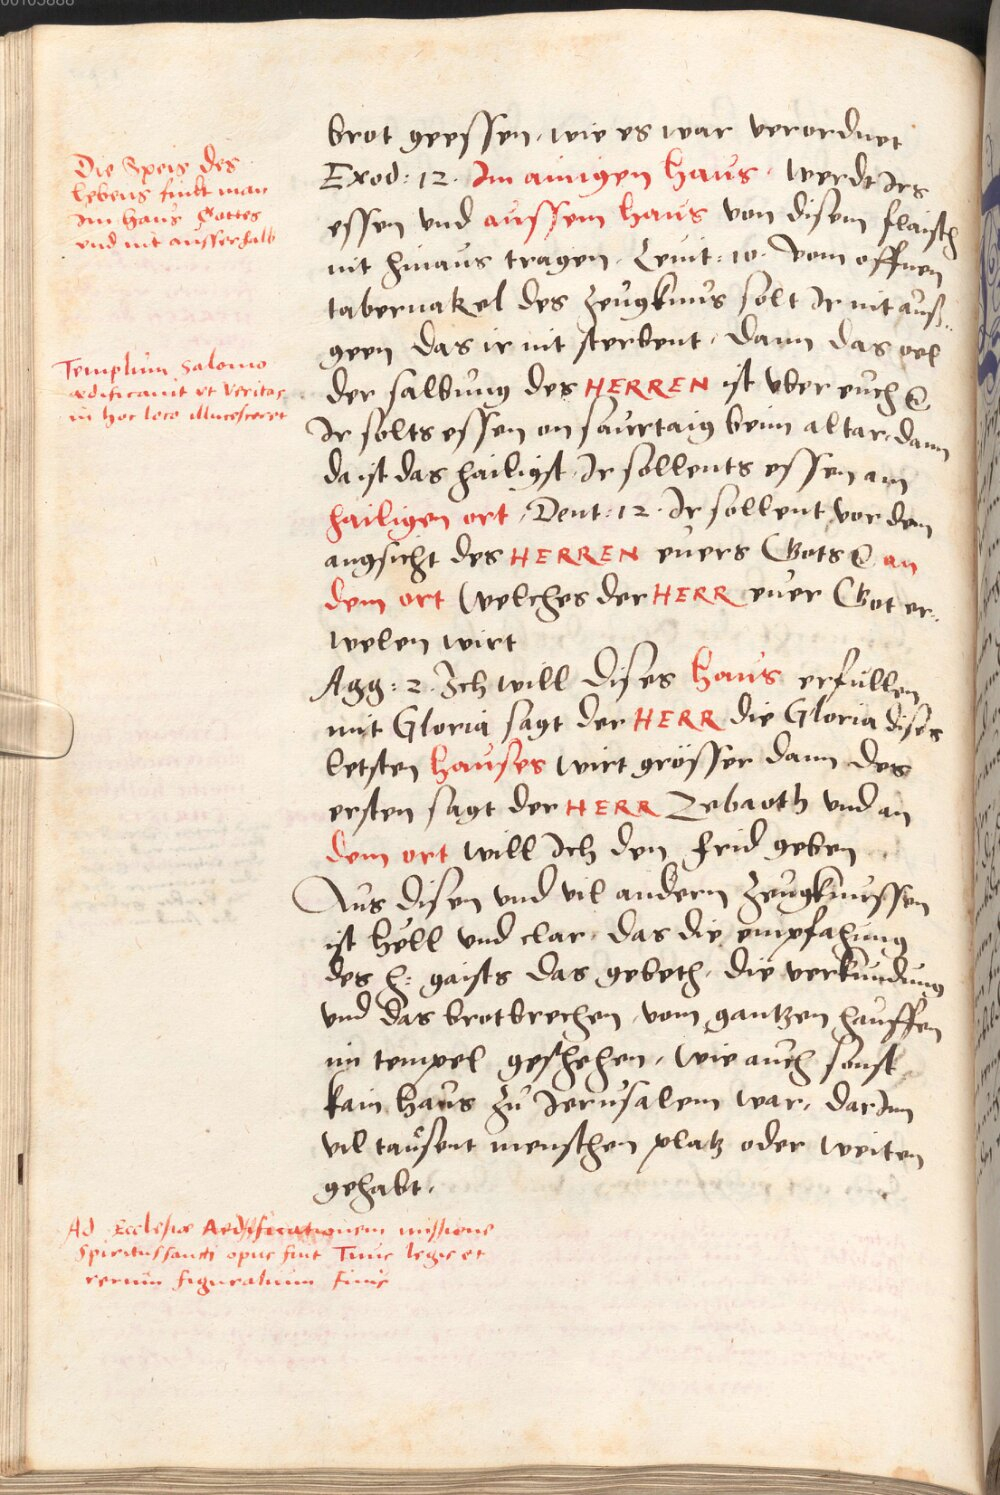 Die Speis des
lebens findt man
Im haus Gottes
und nit ausserhalb
Templum Salomo
ædificauit vt Veritas
in hoc loco illucesceret
brot geessen, wie es war verordnet
Exod: 12. Im ainigen haus, werdt Irs
essen vnd aussem haus von disem flaisch
nit hinaus tragen. Leuit: 10. Vom offnen
tabernakel des Zeugknus solt Ir nit auß-
geen das ir nit sterbent, dann das oel
der salbung des HERREN ist vber euch
Ir solts essen on saurtaig beim altar, dann
da ist das hailigst, Ir sollents essen am
hailigen ort, Deut: 12. Ir sollent vor dem
angsicht des HERREN euers Gots an
dem ort Welches der HERR euer Got er-
welen wirt
Agg: 2. Ich will dises haus erfullen
mit Gloria sagt der HERR die Gloria dises
letsten hauses wirt grösser dann des
ersten sagt der HERR Zebaoth vnd an
dem ort will Ich den frid geben
Aus disen vnd vil andern Zeugknussen
ist hell vnd clar, das die empfahung
des h: gaists das gebeth, die verkundung
vnd das brotbrechen, vom gantzen hauffen
im tempel geschehen, wie auch sonst
kain haus zu Jerusalem war, dar Inn
vil tausent menschen platz oder weiten
gehabt.
Ad Ecclesiæ Aedificationem missione
Spiritussancti opus fuit Tunc legis et
rerum figuralium finis
00105888